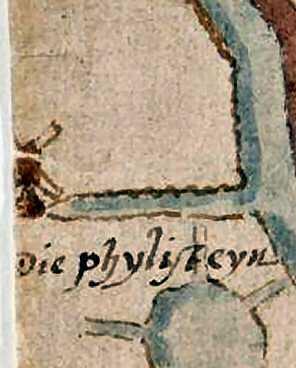 Die phylisteyn